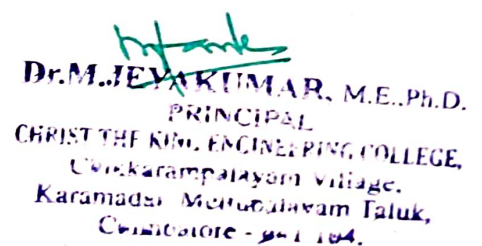 Dr.M.JEYAKUMAR, M.E.,Ph.D.
PRINCIPAL
CHRIST THE KING ENGINEERING COLLEGE,
Village,
Karamadai Mettupalayam Taluk,
Coimbatore - 641 104.